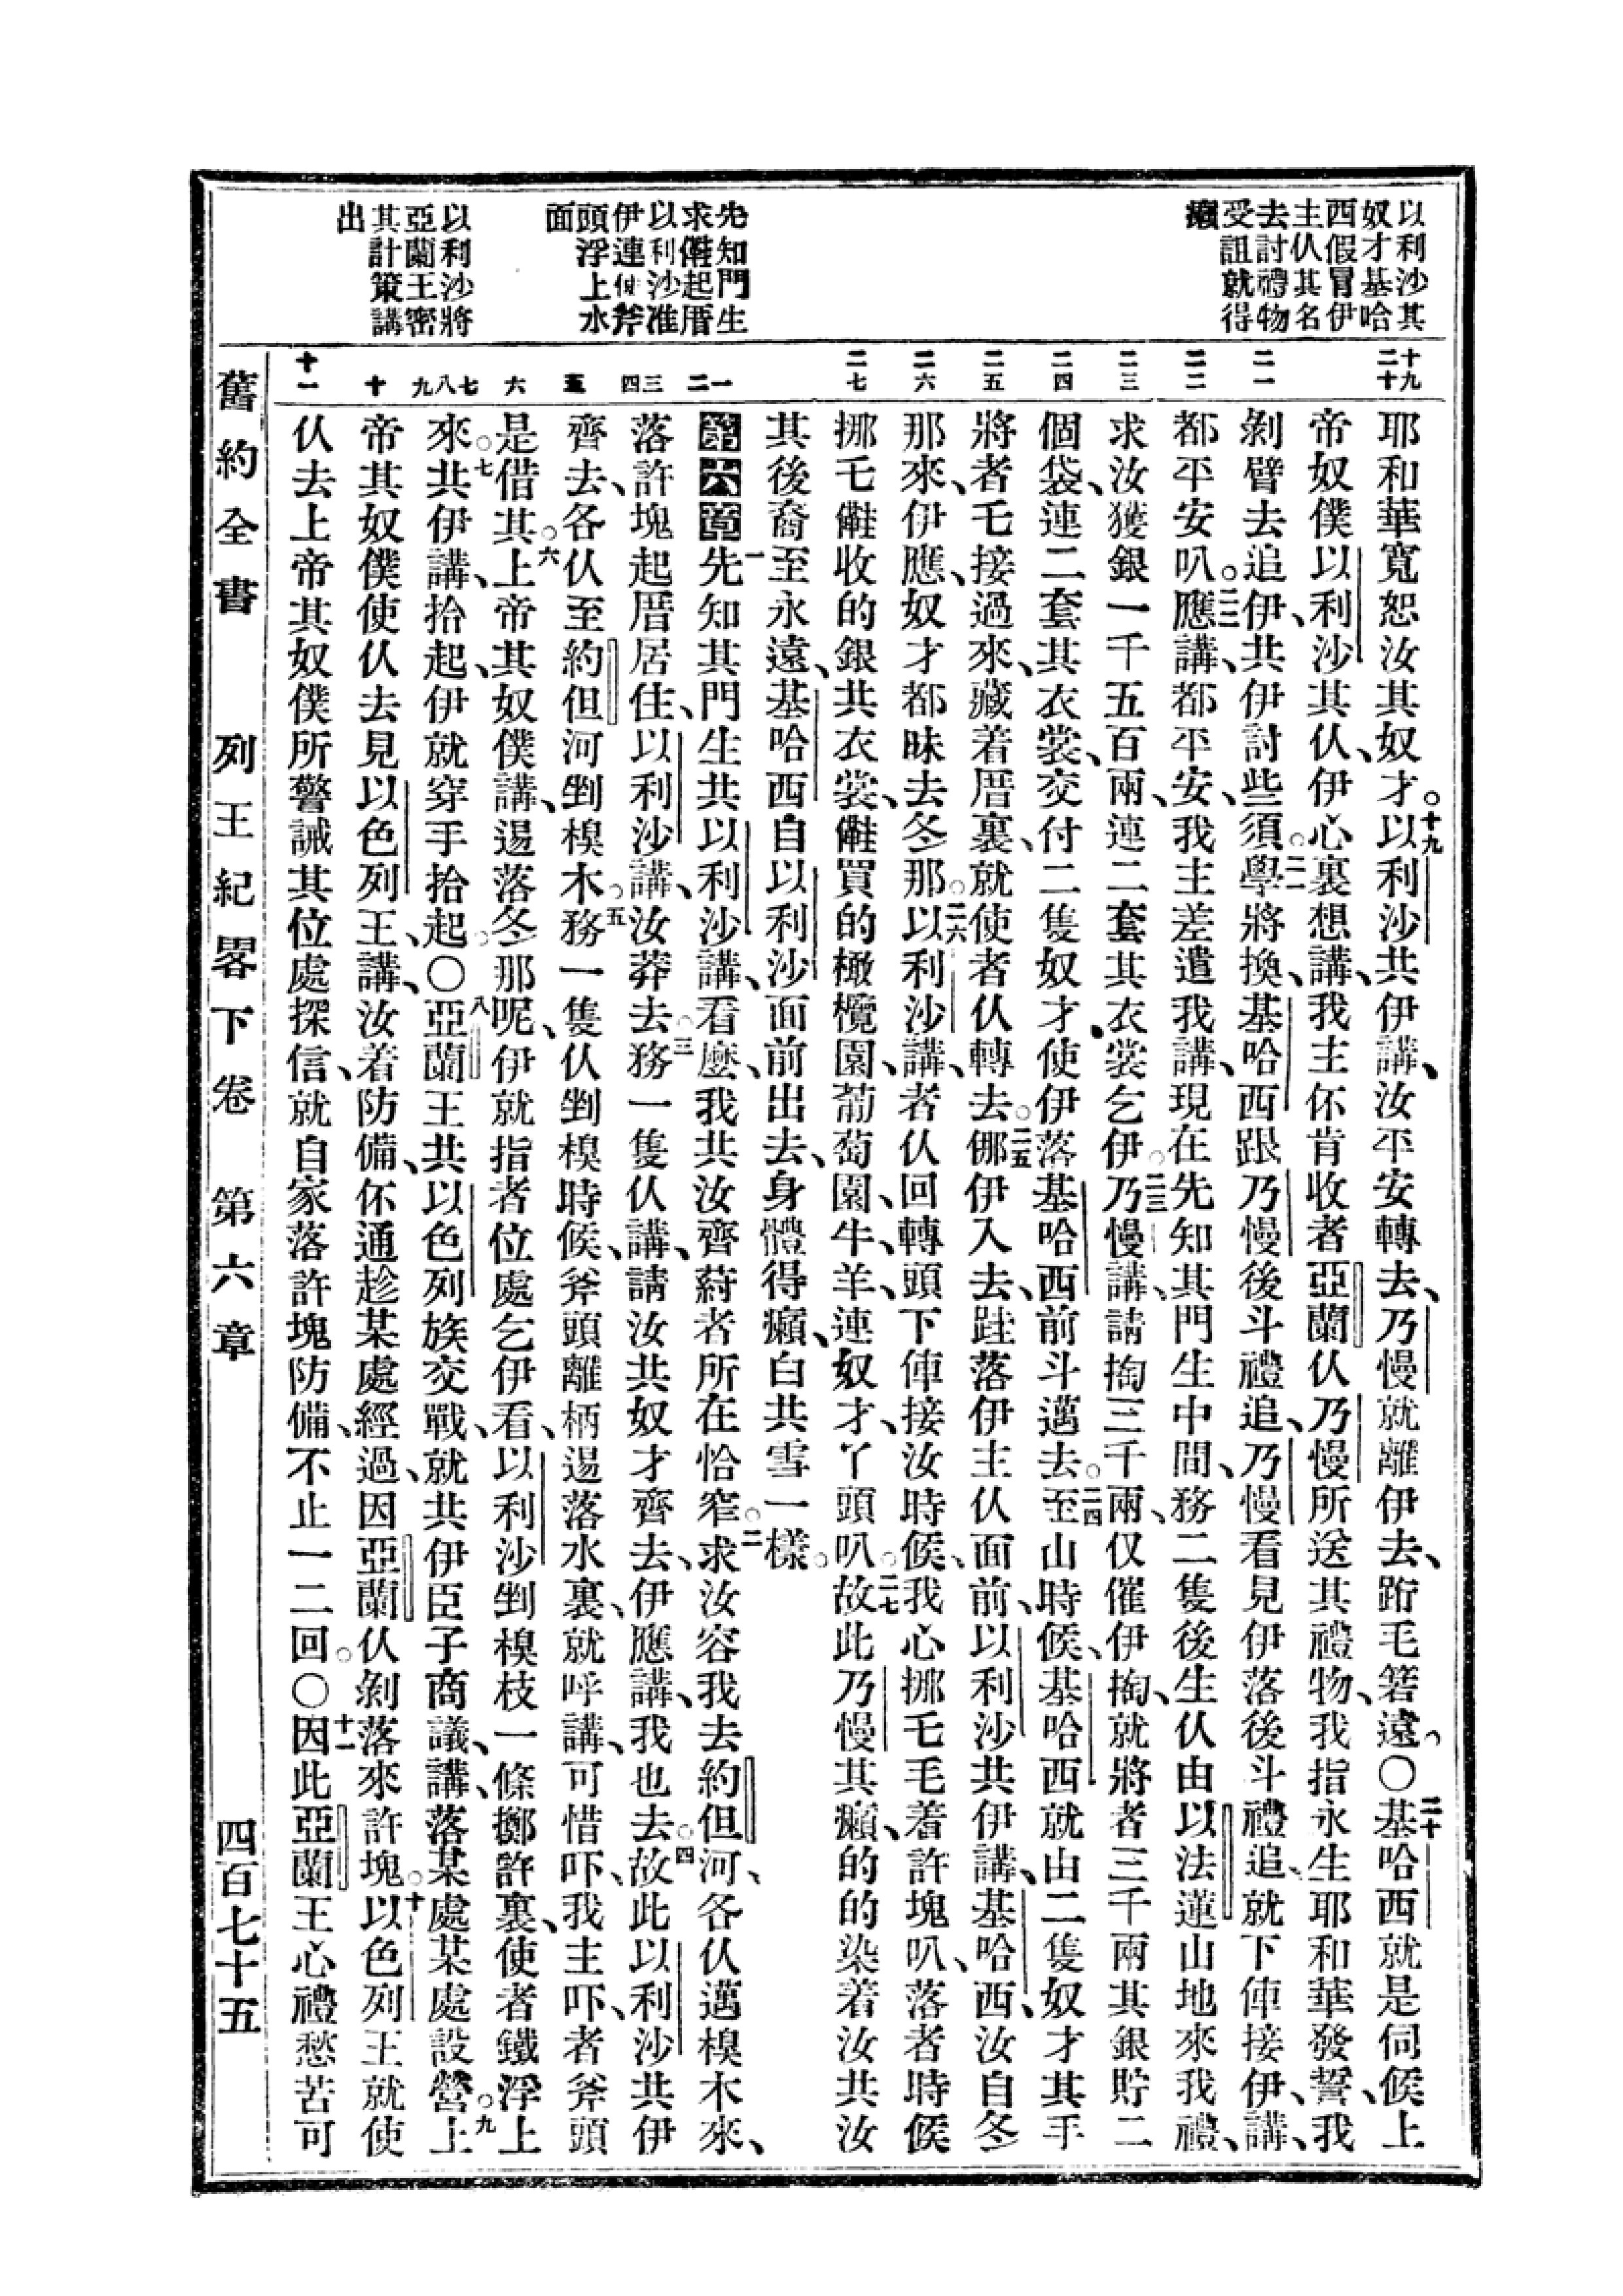 以利沙其
奴才基哈
西假冒伊
主仈其名
去討禮物
受詛就得
癩
先知門生
求僫起厝
以利沙准
伊連使斧
頭浮上水
面
以利沙將
亞蘭王密
其計策講
出
十九 二十 二一 二二 二三 二四 二五 二六 二七 一 二 三 四 五 六 七 八 九 十 十一
耶和華寬恕汝其奴才。十九以利沙共伊講、汝平安轉去、乃慢就離伊去、跲毛箬遠。〇二十基哈西就是伺候上
帝奴僕以利沙其仈、伊心裏想講、我主伓肯收者亞蘭仈乃慢所送其禮物、我指永生耶和華發誓、我
剝臂去追伊、共伊討些須。二一學將換、基哈西跟乃慢後斗禮追、乃慢看見伊落後斗禮追、就下俥接伊、講、
都平安叭。二二應講、都平安、我主差遣我講、現在先知其門生中間、務二隻後生仈由以法蓮山地來我禮、
求汝獲銀一千五百兩、連二套其衣裳乞伊。二三乃慢講、請掏三千兩、仅催伊掏、就將者三千兩其銀貯二
個袋、連二套其衣裳、交付二隻奴才、使伊落基哈西前斗邁去。二四至山時候、基哈西就由二隻奴才其手
將者乇接過來、藏着厝裏、就使者仈轉去。二五㑚伊入去、跬落伊主仈面前、以利沙共伊講、基哈西、汝自冬
那來、伊應、奴才都昧去冬那。二六以利沙講、者仈回轉頭下俥接汝時候、我心挪乇毛着許塊叭、落者時候
挪乇僫收的銀共衣裳、僫買的橄欖園、葡萄園、牛、羊、連奴才、丫頭叭。二七故此乃慢其癩、的的染着汝共汝
其後裔至永遠、基哈西自以利沙面前出去、身體得癩、白共雪一樣。
第六章一先知其門生共以利沙講、看麼、我共汝齊蒔者所在恰窄。二求汝容我去約但河、各仈邁模木來、
落許塊起厝居住、以利沙講、汝莽去。三務一隻仈講、請汝共奴才齊去、伊應講、我也去。四故此以利沙共伊
齊去、各仈至約但河剉模木。五務一隻仈剉模時候、斧頭離柄逿落水裏、就呼講、可惜吓、我主吓、者斧頭
是借其。六上帝其奴僕講、逿落冬那呢、伊就指者位處乞伊看、以利沙剉模枝一條擲許裏、使者鐵浮上
來。七共伊講、拾起、伊就穿手拾起。〇八亞蘭王共以色列族交戰、就共伊臣子商議、講、落某處某處設營。九上
帝其奴僕使仈去見以色列王、講、汝着防備、伓通趁某處經過、因亞蘭仈剝落來許塊。十以色列王就使
仈去上帝其奴僕所警誡其位處探信、就自家落許塊防備、不止一二回。〇十一因此亞蘭王心禮愁苦可
舊約全書 列王紀畧下卷 第六章 四百七十五